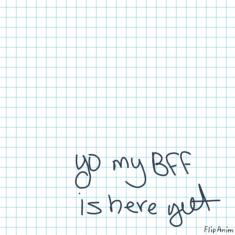 yo my BFF
is here yeet
FlipAnim